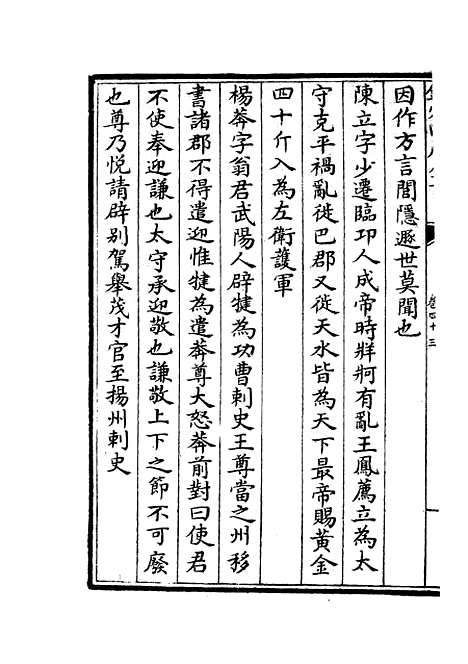 因作方言閭隱遯世莫聞也
陳立字少遷臨邛人成帝時牂牁有亂王鳳薦立為太
守克平禍亂徙巴郡又徙天水皆為天下最帝賜黃金
四十斤入為左衛護軍
楊莽字翁君武陽人辟犍為功曹刺史王尊當之州移
書諸郡不得遣迎惟犍為遣莽尊大怒莽前對曰使君
不使奉迎謙也太守承迎敬也謙敬上下之節不可廢
也尊乃悅請辟別駕舉茂才官至揚州刺史
卷四十三